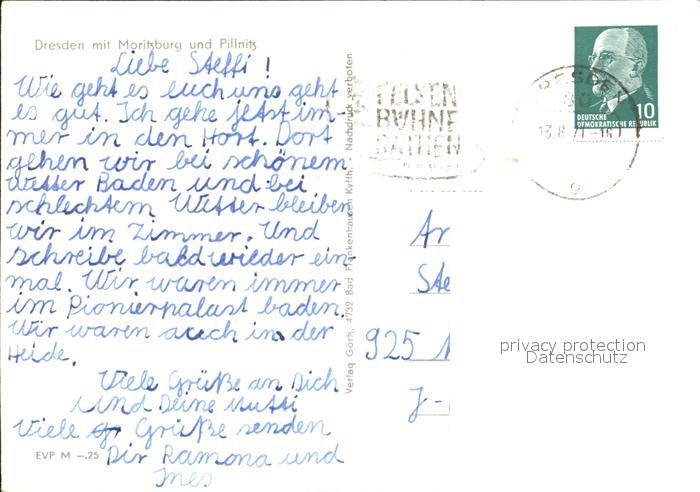 Dresden mit Moritzburg und Pillnitz
Liebe Steffi!
Wie geht es euch uns geht
es gut. Ich gehe jetst im-
mer in den Hort. Dort
gehen wir bei schönem
Wetter Baden und bei
schlechtem Wetter bleiben
wir im Zimmer. Und
schreibe bald wieder ein
mal. Wir waren immer
im Pionierpalast baden.
Wir waren auch in der
Heide.
Viele Grüße an Dich
und Deine Mutti
Viele Grüße senden
Dir Ramona und
Ines
EVP M –.25
Verlag Görtz, 4732 Bad Frankenhausen Kyffh. · Nachdruck verboten
FELSEN
BÜHNE
RATHEN
10
DEUTSCHE
DEMOKRATISCHE REPUBLIK
Ar
Ste
925
J-
privacy protection
Datenschutz